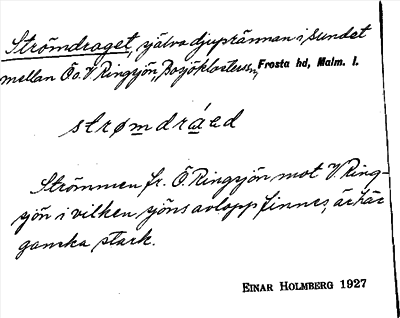 Strömdraget, själva djuprännan i sundet
mellan Ö o. V Ringsjön, Bosjöklosters sn, Frosta hd, Malm. l.
strømdráed
Strömmen fr. Ö Ringsjön mot V Ring-
sjön i vilken sjöns avlopp finnes, är här
ganska stark.
EINAR HOLMBERG 1927